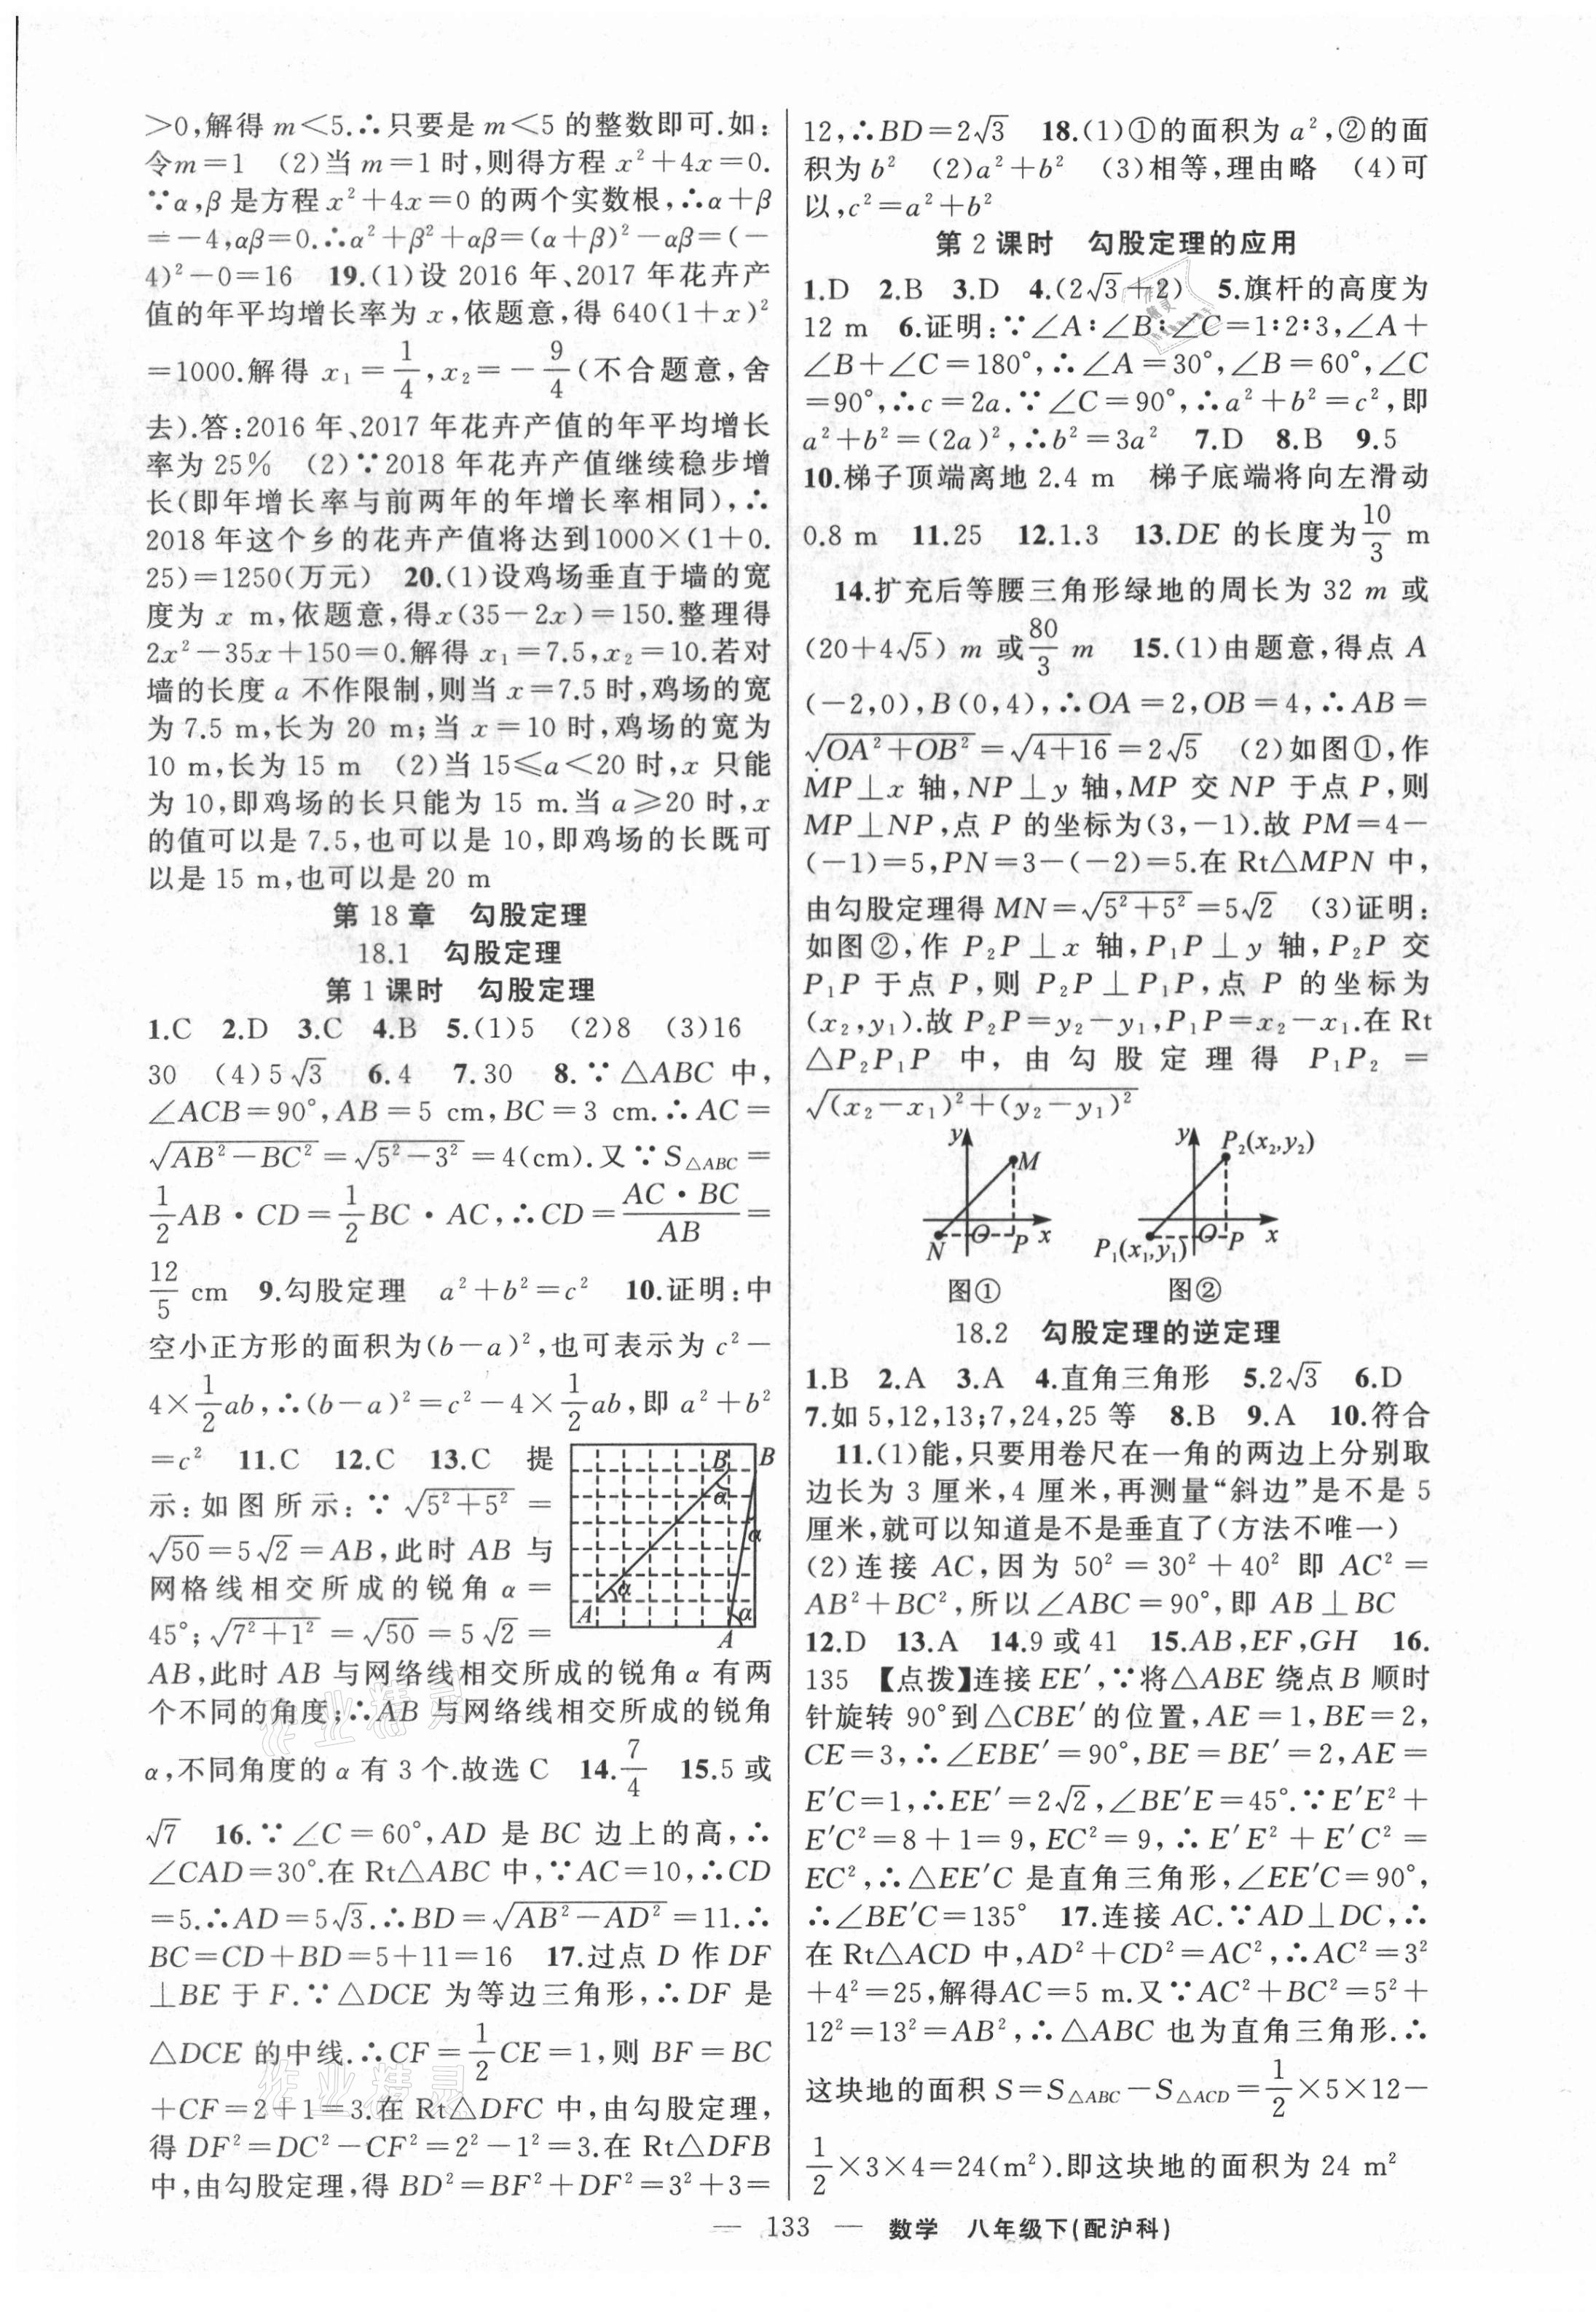 >0,解得 m<5.∴只要是 m<5 的整数即可.如:
令m=1 (2)当 m=1 时,则得方程 x²+4x=0.
∵α,β 是方程 x²+4x=0 的两个实数根,∴α+β
=-4,αβ=0.∴α²+β²+αβ=(α+β)²-αβ=(-
4)²-0=16 19.(1)设 2016 年、2017 年花卉产
值的年平均增长率为 x,依题意,得 640(1+x)²
=1000.解得 x₁=1/4,x₂=-9/4(不合题意,舍
去).答:2016 年、2017 年花卉产值的年平均增长
率为 25% (2)∵2018 年花卉产值继续稳步增
长(即年增长率与前两年的年增长率相同),∴
2018 年这个乡的花卉产值将达到1000×(1+0.
25)=1250(万元) 20.(1)设鸡场垂直于墙的宽
度为 x m,依题意,得x(35-2x)=150.整理得
2x²-35x+150=0.解得 x₁=7.5,x₂=10.若对
墙的长度 a 不作限制,则当 x=7.5 时,鸡场的宽
为 7.5 m,长为 20 m;当 x=10 时,鸡场的宽为
10 m,长为 15 m (2)当 15≤a<20 时,x 只能
为 10,即鸡场的长只能为 15 m.当 a≥20 时,x
的值可以是 7.5,也可以是 10,即鸡场的长既可
以是 15 m,也可以是 20 m
第 18 章 勾股定理
18.1 勾股定理
第 1 课时 勾股定理
1.C 2.D 3.C 4.B 5.(1)5 (2)8 (3)16
30 (4)5√3 6.4 7.30 8.∵△ABC 中,
∠ACB=90°,AB=5 cm,BC=3 cm.∴AC=
√(AB²-BC²)=√(5²-3²)=4(cm).又∵S△ABC=
1/2AB·CD=1/2BC·AC,∴CD=(AC·BC)/AB=
12/5 cm 9.勾股定理 a²+b²=c² 10.证明:中
空小正方形的面积为(b-a)²,也可表示为 c²-
4×1/2ab,∴(b-a)²=c²-4×1/2ab,即 a²+b²
=c² 11.C 12.C 13.C 提
示:如图所示:∵√(5²+5²)=
√50=5√2=AB,此时 AB 与
网格线相交所成的锐角 α=
45°;√(7²+1²)=√50=5√2=
B B
α
α
α
A α
A
AB,此时 AB 与网络线相交所成的锐角 α 有两
个不同的角度;∴AB 与网络线相交所成的锐角
α,不同角度的 α 有 3 个.故选 C 14.7/4 15.5 或
√7 16.∵∠C=60°,AD 是 BC 边上的高,∴
∠CAD=30°.在 Rt△ABC 中,∵AC=10,∴CD
=5.∴AD=5√3.∴BD=√(AB²-AD²)=11.∴
BC=CD+BD=5+11=16 17.过点 D 作 DF
⊥BE 于 F.∵△DCE 为等边三角形,∴DF 是
△DCE 的中线.∴CF=1/2CE=1,则 BF=BC
+CF=2+1=3.在 Rt△DFC 中,由勾股定理,
得 DF²=DC²-CF²=2²-1²=3.在 Rt△DFB
中,由勾股定理,得 BD²=BF²+DF²=3²+3=
12,∴BD=2√3 18.(1)①的面积为 a²,②的面
积为 b² (2)a²+b² (3)相等,理由略 (4)可
以,c²=a²+b²
第 2 课时 勾股定理的应用
1.D 2.B 3.D 4.(2√3+2) 5.旗杆的高度为
12 m 6.证明:∵∠A∶∠B∶∠C=1∶2∶3,∠A+
∠B+∠C=180°,∴∠A=30°,∠B=60°,∠C
=90°,∴c=2a.∵∠C=90°,∴a²+b²=c²,即
a²+b²=(2a)²,∴b²=3a² 7.D 8.B 9.5
10.梯子顶端离地 2.4 m 梯子底端将向左滑动
0.8 m 11.25 12.1.3 13.DE 的长度为10/3 m
14.扩充后等腰三角形绿地的周长为 32 m 或
(20+4√5) m 或80/3 m 15.(1)由题意,得点 A
(-2,0),B(0,4),∴OA=2,OB=4,∴AB=
√(OA²+OB²)=√(4+16)=2√5 (2)如图①,作
MP⊥x 轴,NP⊥y 轴,MP 交 NP 于点 P,则
MP⊥NP,点 P 的坐标为(3,-1).故 PM=4-
(-1)=5,PN=3-(-2)=5.在 Rt△MPN 中,
由勾股定理得 MN=√(5²+5²)=5√2 (3)证明:
如图②,作 P₂P⊥x 轴,P₁P⊥y 轴,P₂P 交
P₁P 于点 P,则 P₂P⊥P₁P,点 P 的坐标为
(x₂,y₁).故 P₂P=y₂-y₁,P₁P=x₂-x₁.在 Rt
△P₂P₁P 中,由勾股定理得 P₁P₂=
√((x₂-x₁)²+(y₂-y₁)²)
y M N O P x
图①
y P₂(x₂,y₂) P₁(x₁,y₁) O P x
图②
18.2 勾股定理的逆定理
1.B 2.A 3.A 4.直角三角形 5.2√3 6.D
7.如 5,12,13;7,24,25 等 8.B 9.A 10.符合
11.(1)能,只要用卷尺在一角的两边上分别取
边长为 3 厘米,4 厘米,再测量“斜边”是不是 5
厘米,就可以知道是不是垂直了(方法不唯一)
(2)连接 AC,因为 50²=30²+40² 即 AC²=
AB²+BC²,所以∠ABC=90°,即 AB⊥BC
12.D 13.A 14.9 或 41 15.AB,EF,GH 16.
135 【点拨】连接 EE′,∵将△ABE 绕点 B 顺时
针旋转 90°到△CBE′的位置,AE=1,BE=2,
CE=3,∴∠EBE′=90°,BE=BE′=2,AE=
E′C=1,∴EE′=2√2,∠BE′E=45°.∵E′E²+
E′C²=8+1=9,EC²=9,∴E′E²+E′C²=
EC²,∴△EE′C 是直角三角形,∠EE′C=90°,
∴∠BE′C=135° 17.连接 AC.∵AD⊥DC,∴
在 Rt△ACD 中,AD²+CD²=AC²,∴AC²=3²
+4²=25,解得AC=5 m.又∵AC²+BC²=5²+
12²=13²=AB²,∴△ABC 也为直角三角形.∴
这块地的面积 S=S△ABC-S△ACD=1/2×5×12-
1/2×3×4=24(m²).即这块地的面积为 24 m²
— 133 — 数学 八年级下(配沪科)
作业精灵
作业精灵